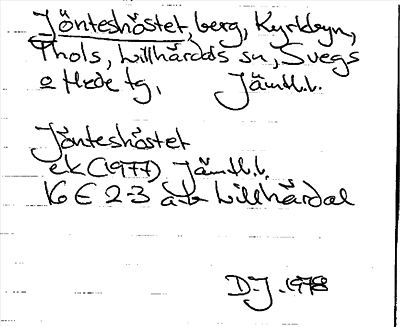 Jönteshöstet, berg, Kyrkbyn,
Thols, Lillhärdals sn, Svegs
o Hede tg, Jämtl.l.
Jönteshöstet
ek (1977) Jämtl.l.
16 E 2-3 a-b Lillhärdal
D-J. 1978